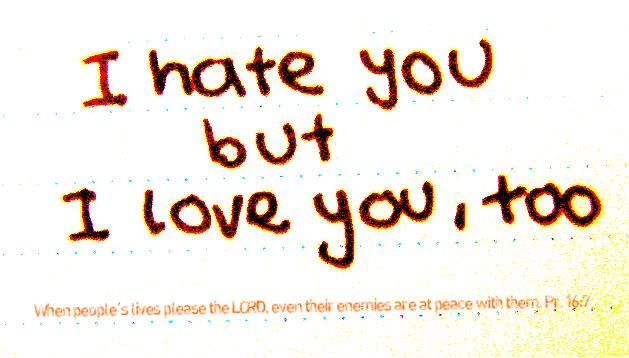 I hate you
but
I love you, too
When people's lives please the LORD, even their enemies are at peace with them. Pr. 16:7